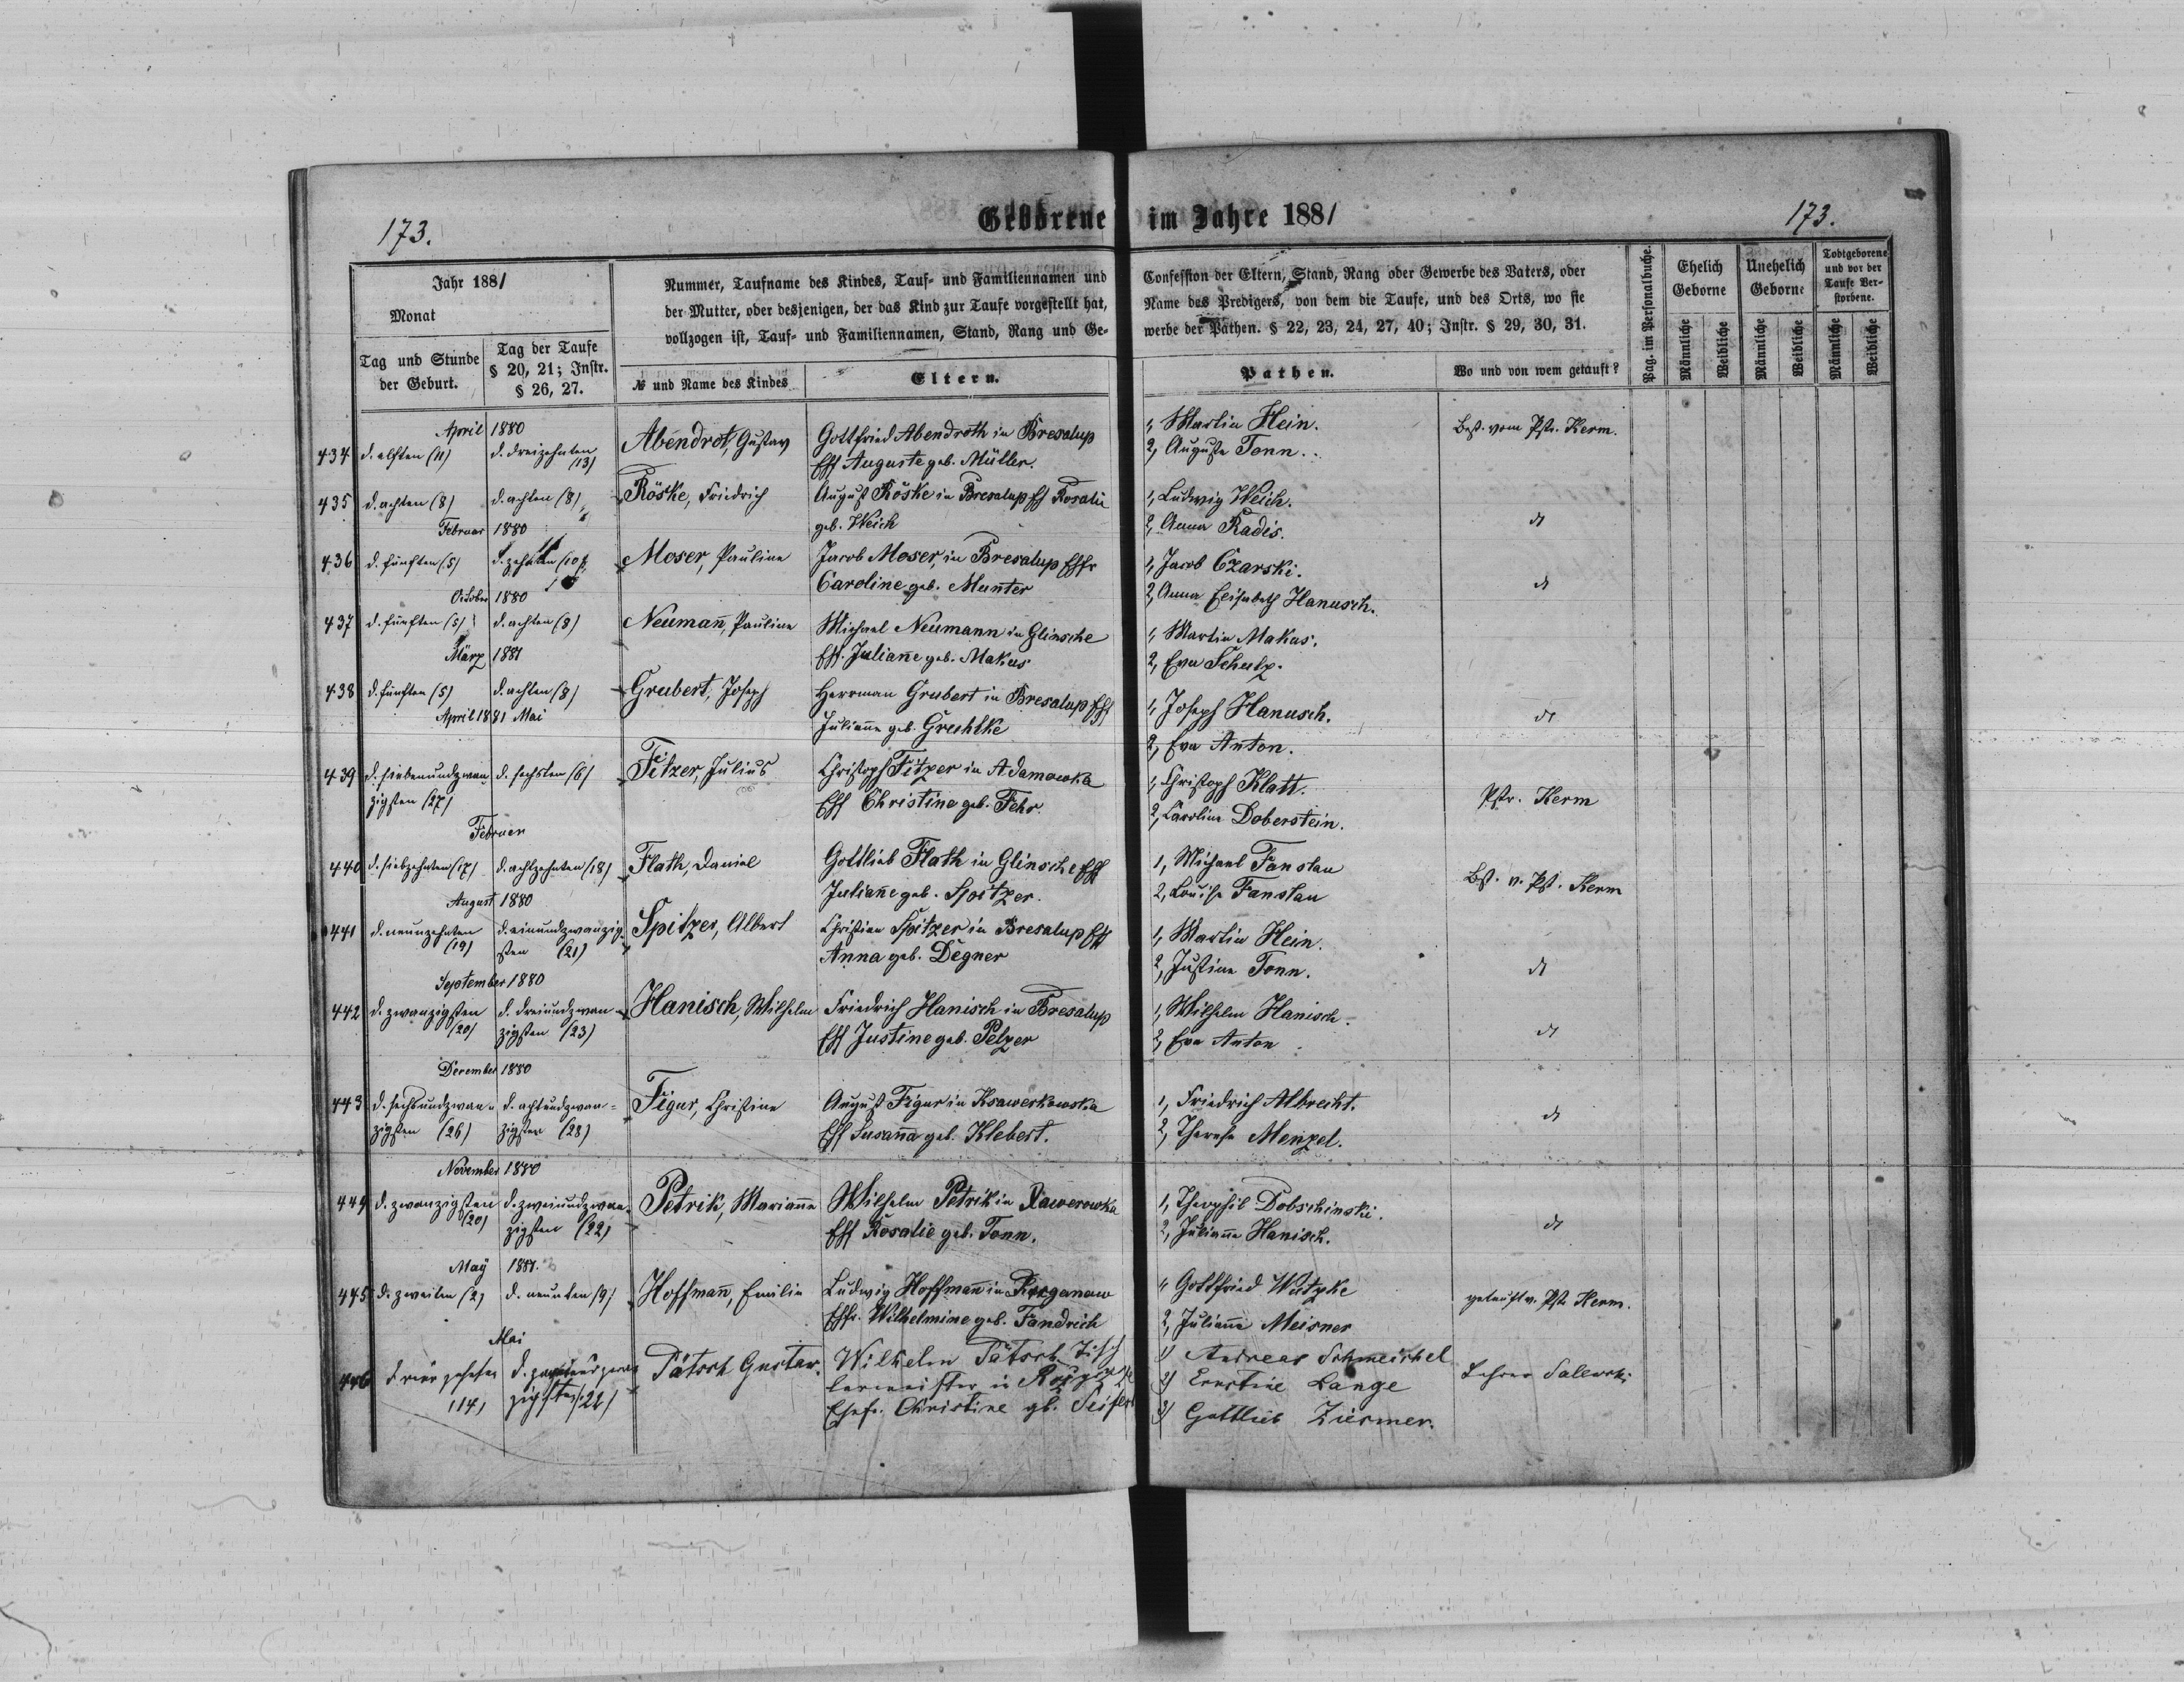 173.
Geborene im Jahre 1881
173.
Jahr 1881
Monat
Tag und Stunde der Geburt.
Tag der Taufe § 20, 21; Instr. § 26, 27.
Nummer, Taufname des Kindes, Tauf- und Familiennamen und
der Mutter, oder desjenigen, der das Kind zur Taufe vorgestellt hat,
vollzogen ist, Tauf- und Familiennamen, Stand, Rang und Ge-
№ und Name des Kindes
Eltern.
Confession der Eltern, Stand, Rang oder Gewerbe des Vaters, oder
Name des Predigers, von dem die Taufe, und des Orts, wo sie
werbe der Pathen. § 22, 23, 24, 27, 40; Instr. § 29, 30, 31.
Pathen.
Wo und von wem getauft?
Pag. im Personalbuche.
Ehelich Geborne
Unehelich Geborne
Todtgeborene und vor der Taufe Verstorbene.
Männliche
Weibliche
Männliche
Weibliche
Männliche
Weibliche
April 1880
434 d. elften (11) d. dreizehnten (13) Abendrot, Gustav
Gottfried Abendroth in Bresalup
Eff Auguste geb. Müller.
1, Martin Hein.
2, Auguste Tonn.
Best. vom Pstr. Kerm.
435 d. achten (8) d. achten (8) Röske, Friedrich
August Röske in Bresalup Ef Rosalie
geb. Weich
1, Ludwig Weich.
2, Anna Radis.
dt
Februar 1880
436 d. fünften (5) d. zehnten (10) Moser, Pauline
Jacob Moser, in Bresalup Ehfr
Caroline geb. Munter
1, Jacob Czarski.
2, Anna Elisabeth Hanusch.
dt
October 1880
437 d. fünften (5) d. achten (8) Neumañ, Pauline
Michael Neumann in Glinsche
Eff. Juliañe geb. Makus
1, Martin Makus.
2, Eva Schulz.
März 1881
438 d. fünften (5) d. achten (8) Grubert, Joseph
Herrman Grubert in Bresalup Eff
Juliañe geb.
1, Joseph Hanusch.
2, Eva Anton.
dt
April 1881 Mai
439 d. siebenundzwan-
zigsten (27) d. sechsten (6) Fitzer, Julius
Christoph Fitzer in Adamowka
Eff Christine geb. Fehr.
1, Christoph Klatt.
2, Caroline Doberstein.
Pstr. Kerm
Februar
440 d. siebzehnten (17) d. achtzehnten (18) Flath, Daniel
Gottlieb Flath in Glinsche Eff
Juliañe geb. Spitzer.
1, Michael Fanslau
2, Louise Fanslau
Bst. v. Pst. Kerm
August 1880
441 d. neunzehnten (19) d. einundzwanzig-
sten (21) Spitzer, Albert
Christian Spitzer in Bresalup Eff
Anna geb. Degner
1, Martin Hein.
2, Justine Tonn.
dt
September 1880
442 d. zwanzigsten (20) d. dreiundzwan-
zigsten (23) Hanisch, Wilhelm
Friedrich Hanisch in Bresalup
Eff Justine geb. Pelzer
1, Wilhelm Hanisch.
2, Eva Anton
dt
December 1880
443 d. sechsundzwan-
zigsten (26) d. achtundzwan-
zigsten (28) Figur, Christine
August Figur in Ksawerkowska
Eff Susaña geb. Klebert.
1, Friedrich Albrecht.
2, Therese Menzel.
dt
November 1880
444 d. zwanzigsten (20) d. zweiundzwan-
zigsten (22) Petrik, Mariañe
Wilhelm Petrik in Xawerowka
Eff Rosalie geb. Tonn.
1, Theophil Dobschinski.
2, Juliañe Hanisch.
dt
May 1881.
445 d. zweiten (2) d. neunten (9) Hoffmañ, Emilie
Ludwig Hoffmañ in Kurganow
Ehfr. Wilhelmine geb. Fandrich
1, Gottfried Wutzke
2, Juliañe Meisner
getauft v. Pstr Kerm.
Mai
446 d. vier zehnten (14) d. zweiundzwan
zigsten (22) Pätsch Gustav.
Wilhelm Pätsch Tisch
lermeister in
Ehefr. Christine gb. Seifert
1) Andreas Schmeichel
2) Ernstine Lange
3) Gottlieb Ziesmer.
Lehrer Salewski